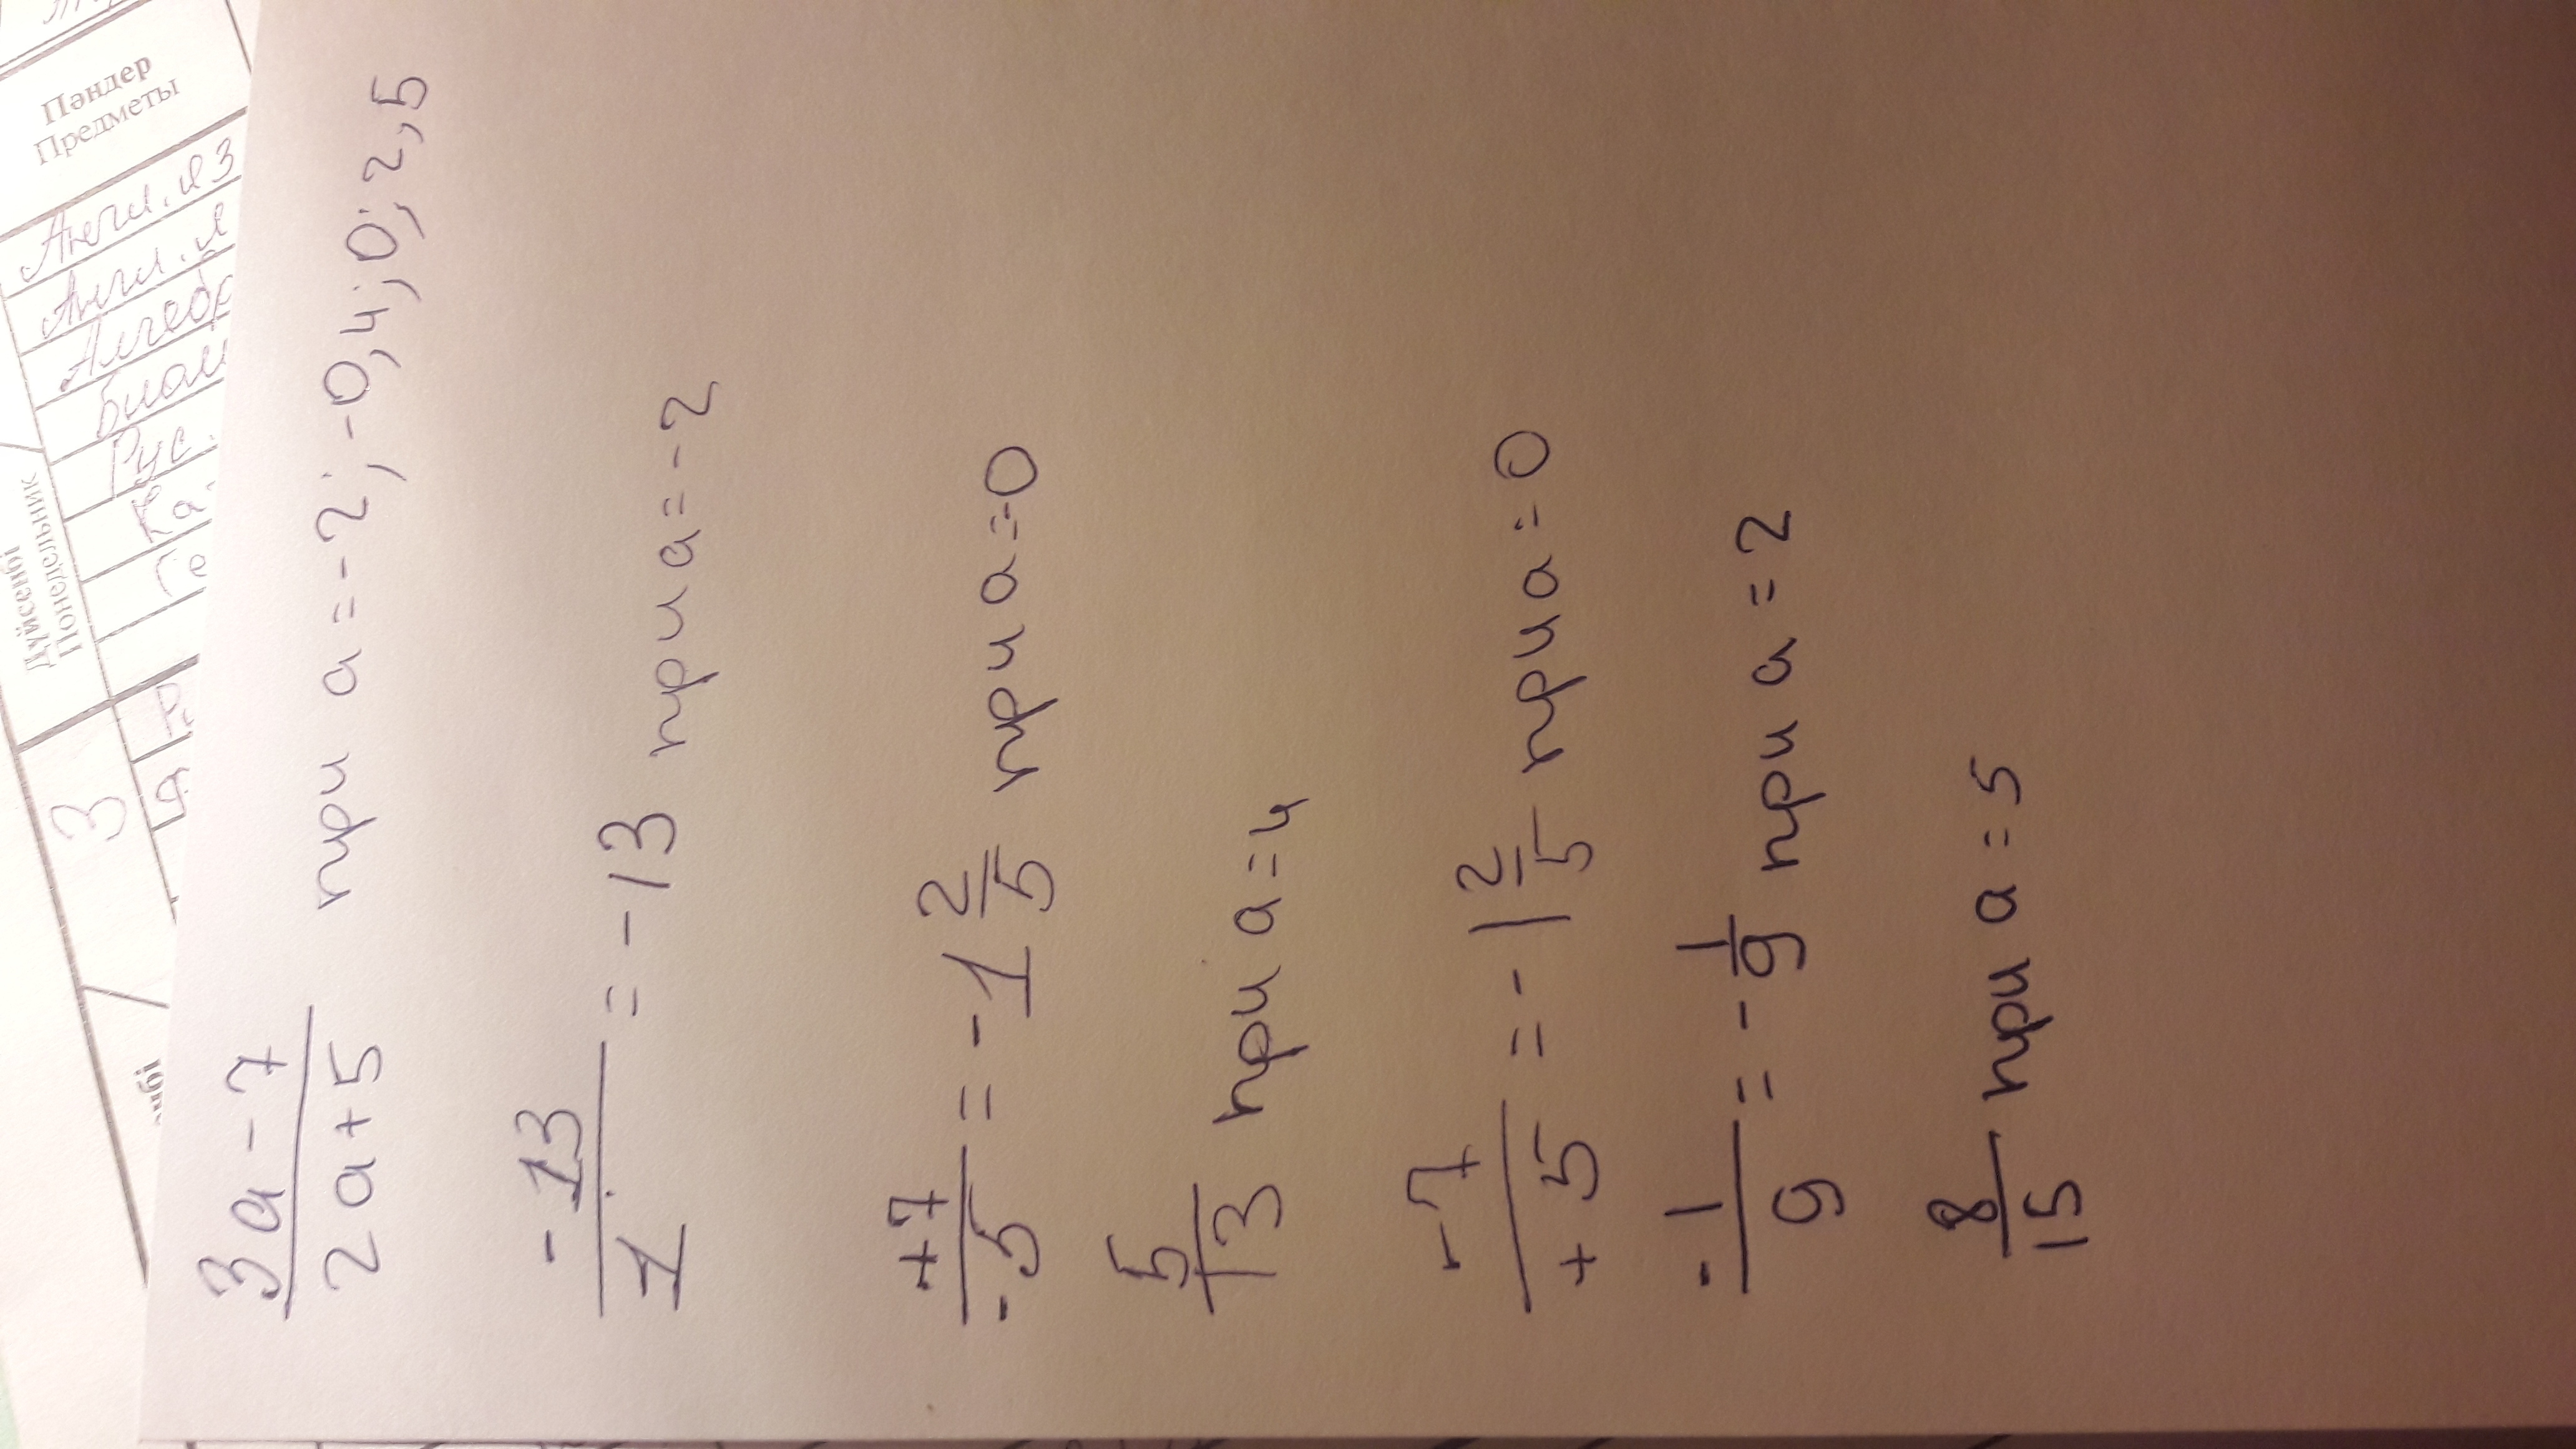 Пәндер
Предметы
Дүйсенбі
Понедельник
Англ. яз
Англ. я
Алгебр
Рус.
3
3a - 7
2a + 5
при a = -2; -0,4; 0; 2,5
-13
1
= -13 при a = -2
+7
-5
= -1 2/5 при a = -0
5
13
при a = 4
-7
+5
= -1 2/5 при a = 0
-1
9
= -1/9 при a = 2
8
15
при a = 5